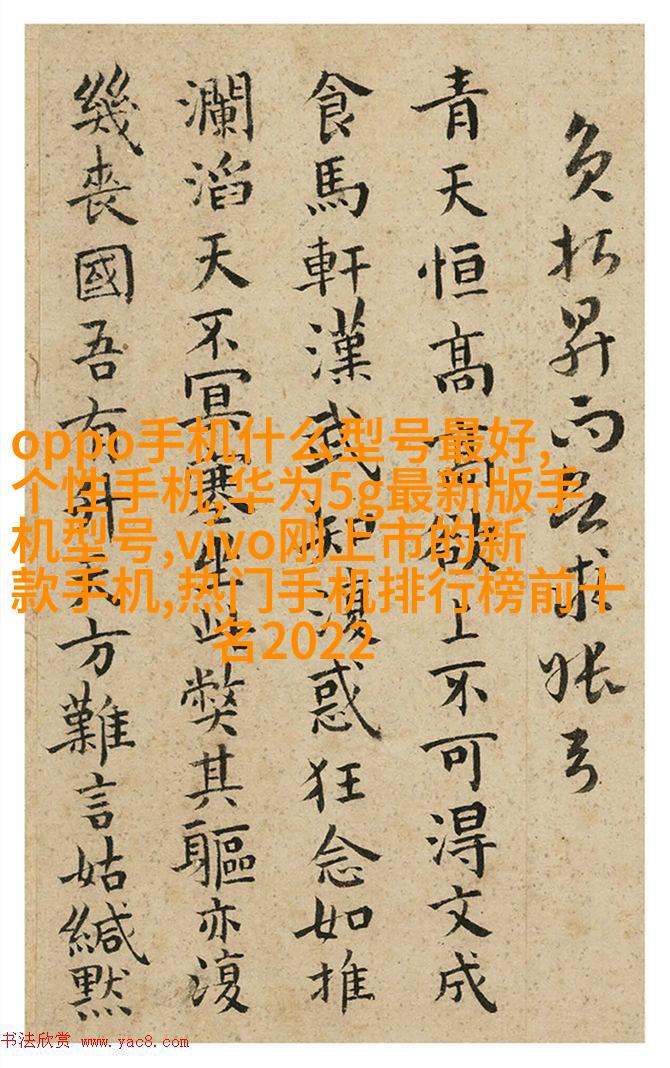 昇而求
青天恒高欲上不可得文成
食馬軒漢武知復惑狂念如推
瀾滔天不冥塞此弊其軀亦復
幾喪國吾有方難言姑緘默
oppo手机什么型号最好,
个性手机,华为5g最新版手
机型号,vivo刚上市的新
款手机,热门手机排行榜前十
名2022
书法欣赏 www.yac8.com